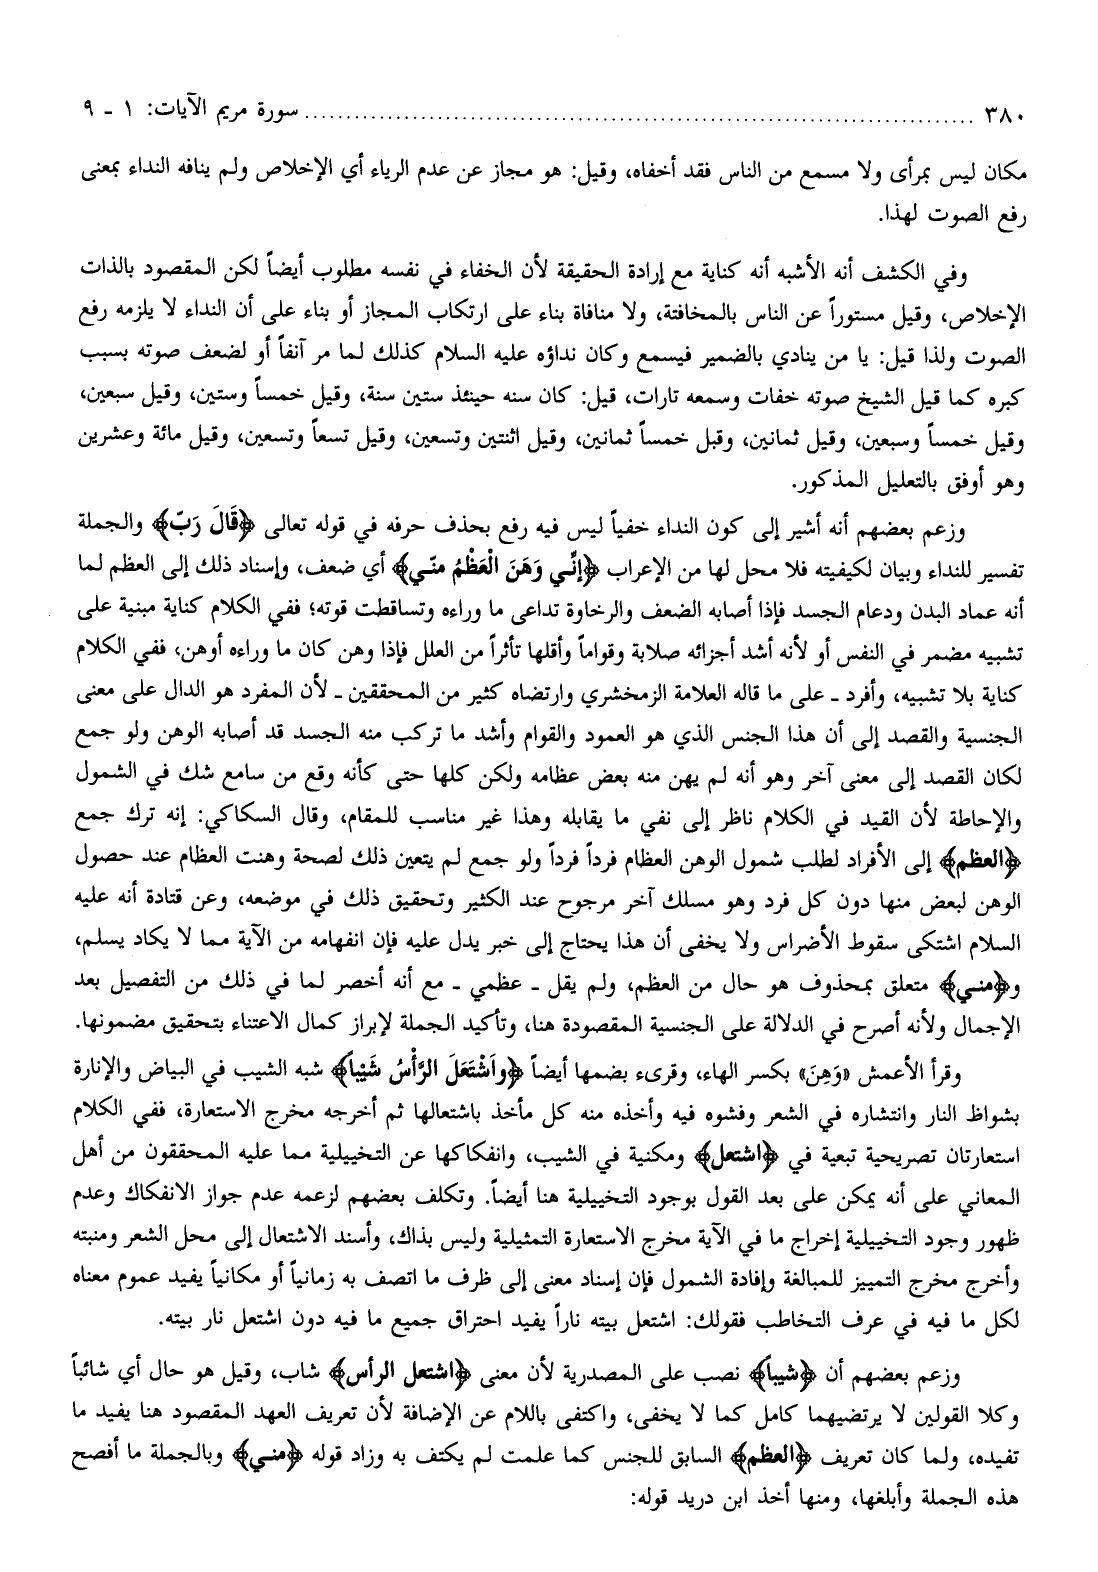 ٣٨٠ ........................................................ سورة مريم الآيات: ١ ـ ٩
مكان ليس بمرأى ولا مسمع من الناس فقد أخفاه، وقيل: هو مجاز عن عدم الرياء أي الإخلاص ولم ينافه النداء بمعنى
رفع الصوت لهذا.
وفي الكشف أنه الأشبه أنه كناية مع إرادة الحقيقة لأن الخفاء في نفسه مطلوب أيضاً لكن المقصود بالذات
الإخلاص، وقيل مستوراً عن الناس بالمخافتة، ولا منافاة بناء على ارتكاب المجاز أو بناء على أن النداء لا يلزمه رفع
الصوت ولذا قيل: يا من ينادي بالضمير فيسمع وكان نداؤه عليه السلام كذلك لما مر آنفاً أو لضعف صوته بسبب
كبره كما قيل الشيخ صوته خفات وسمعه تارات، قيل: كان سنه حينئذ ستين سنة، وقيل خمساً وستين، وقيل سبعين،
وقيل خمساً وسبعين، وقيل ثمانين، وقبل خمساً ثمانين، وقيل اثنتين وتسعين، وقيل تسعاً وتسعين، وقيل مائة وعشرين
وهو أوفق بالتعليل المذكور.
وزعم بعضهم أنه أشير إلى كون النداء خفياً ليس فيه رفع بحذف حرفه في قوله تعالى ﴿قَالَ رَبّ﴾ والجملة
تفسير للنداء وبيان لكيفيته فلا محل لها من الإعراب ﴿إنِّي وَهَنَ الْعَظْمُ منّي﴾ أي ضعف، وإسناد ذلك إلى العظم لما
أنه عماد البدن ودعام الجسد فإذا أصابه الضعف والرخاوة تداعى ما وراءه وتساقطت قوته؛ ففي الكلام كناية مبنية على
تشبيه مضمر في النفس أو لأنه أشد أجزائه صلابة وقواماً وأقلها تأثراً من العلل فإذا وهن كان ما وراءه أوهن، ففي الكلام
كناية بلا تشبيه، وأفرد ـ على ما قاله العلامة الزمخشري وارتضاه كثير من المحققين ـ لأن المفرد هو الدال على معنى
الجنسية والقصد إلى أن هذا الجنس الذي هو العمود والقوام وأشد ما تركب منه الجسد قد أصابه الوهن ولو جمع
لكان القصد إلى معنى آخر وهو أنه لم يهن منه بعض عظامه ولكن كلها حتى كأنه وقع من سامع شك في الشمول
والإحاطة لأن القيد في الكلام ناظر إلى نفي ما يقابله وهذا غير مناسب للمقام، وقال السكاكي: إنه ترك جمع
﴿العظم﴾ إلى الأفراد لطلب شمول الوهن العظام فرداً فرداً ولو جمع لم يتعين ذلك لصحة وهنت العظام عند حصول
الوهن لبعض منها دون كل فرد وهو مسلك آخر مرجوح عند الكثير وتحقيق ذلك في موضعه، وعن قتادة أنه عليه
السلام اشتكى سقوط الأضراس ولا يخفى أن هذا يحتاج إلى خبر يدل عليه فإن انفهامه من الآية مما لا يكاد يسلم،
و﴿مني﴾ متعلق بمحذوف هو حال من العظم، ولم يقل ـ عظمي ـ مع أنه أخصر لما في ذلك من التفصيل بعد
الإجمال ولأنه أصرح في الدلالة على الجنسية المقصودة هنا، وتأكيد الجملة لإبراز كمال الاعتناء بتحقيق مضمونها.
وقرأ الأعمش «وَهِنَ» بكسر الهاء، وقرىء بضمها أيضاً ﴿واَشْتَعَلَ الرَّأْسُ شَيْباً﴾ شبه الشيب في البياض والإنارة
بشواظ النار وانتشاره في الشعر وفشوه فيه وأخذه منه كل مأخذ باشتعالها ثم أخرجه مخرج الاستعارة، ففي الكلام
استعارتان تصريحية تبعية في ﴿اشتعل﴾ ومكنية في الشيب، وانفكاكها عن التخييلية مما عليه المحققون من أهل
المعاني على أنه يمكن على بعد القول بوجود التخييلية هنا أيضاً. وتكلف بعضهم لزعمه عدم جواز الانفكاك وعدم
ظهور وجود التخييلية إخراج ما في الآية مخرج الاستعارة التمثيلية وليس بذاك، وأسند الاشتعال إلى محل الشعر ومنبته
وأخرج مخرج التمييز للمبالغة وإفادة الشمول فإن إسناد معنى إلى ظرف ما اتصف به زمانياً أو مكانياً يفيد عموم معناه
لكل ما فيه في عرف التخاطب فقولك: اشتعل بيته ناراً يفيد احتراق جميع ما فيه دون اشتعل نار بيته.
وزعم بعضهم أن ﴿شيباً﴾ نصب على المصدرية لأن معنى ﴿اشتعل الرأس﴾ شاب، وقيل هو حال أي شائباً
وكلا القولين لا يرتضيهما كامل كما لا يخفى، واكتفى باللام عن الإضافة لأن تعريف العهد المقصود هنا يفيد ما
تفيده، ولما كان تعريف ﴿العظم﴾ السابق للجنس كما علمت لم يكتف به وزاد قوله ﴿مني﴾ وبالجملة ما أفصح
هذه الجملة وأبلغها، ومنها أخذ ابن دريد قوله: